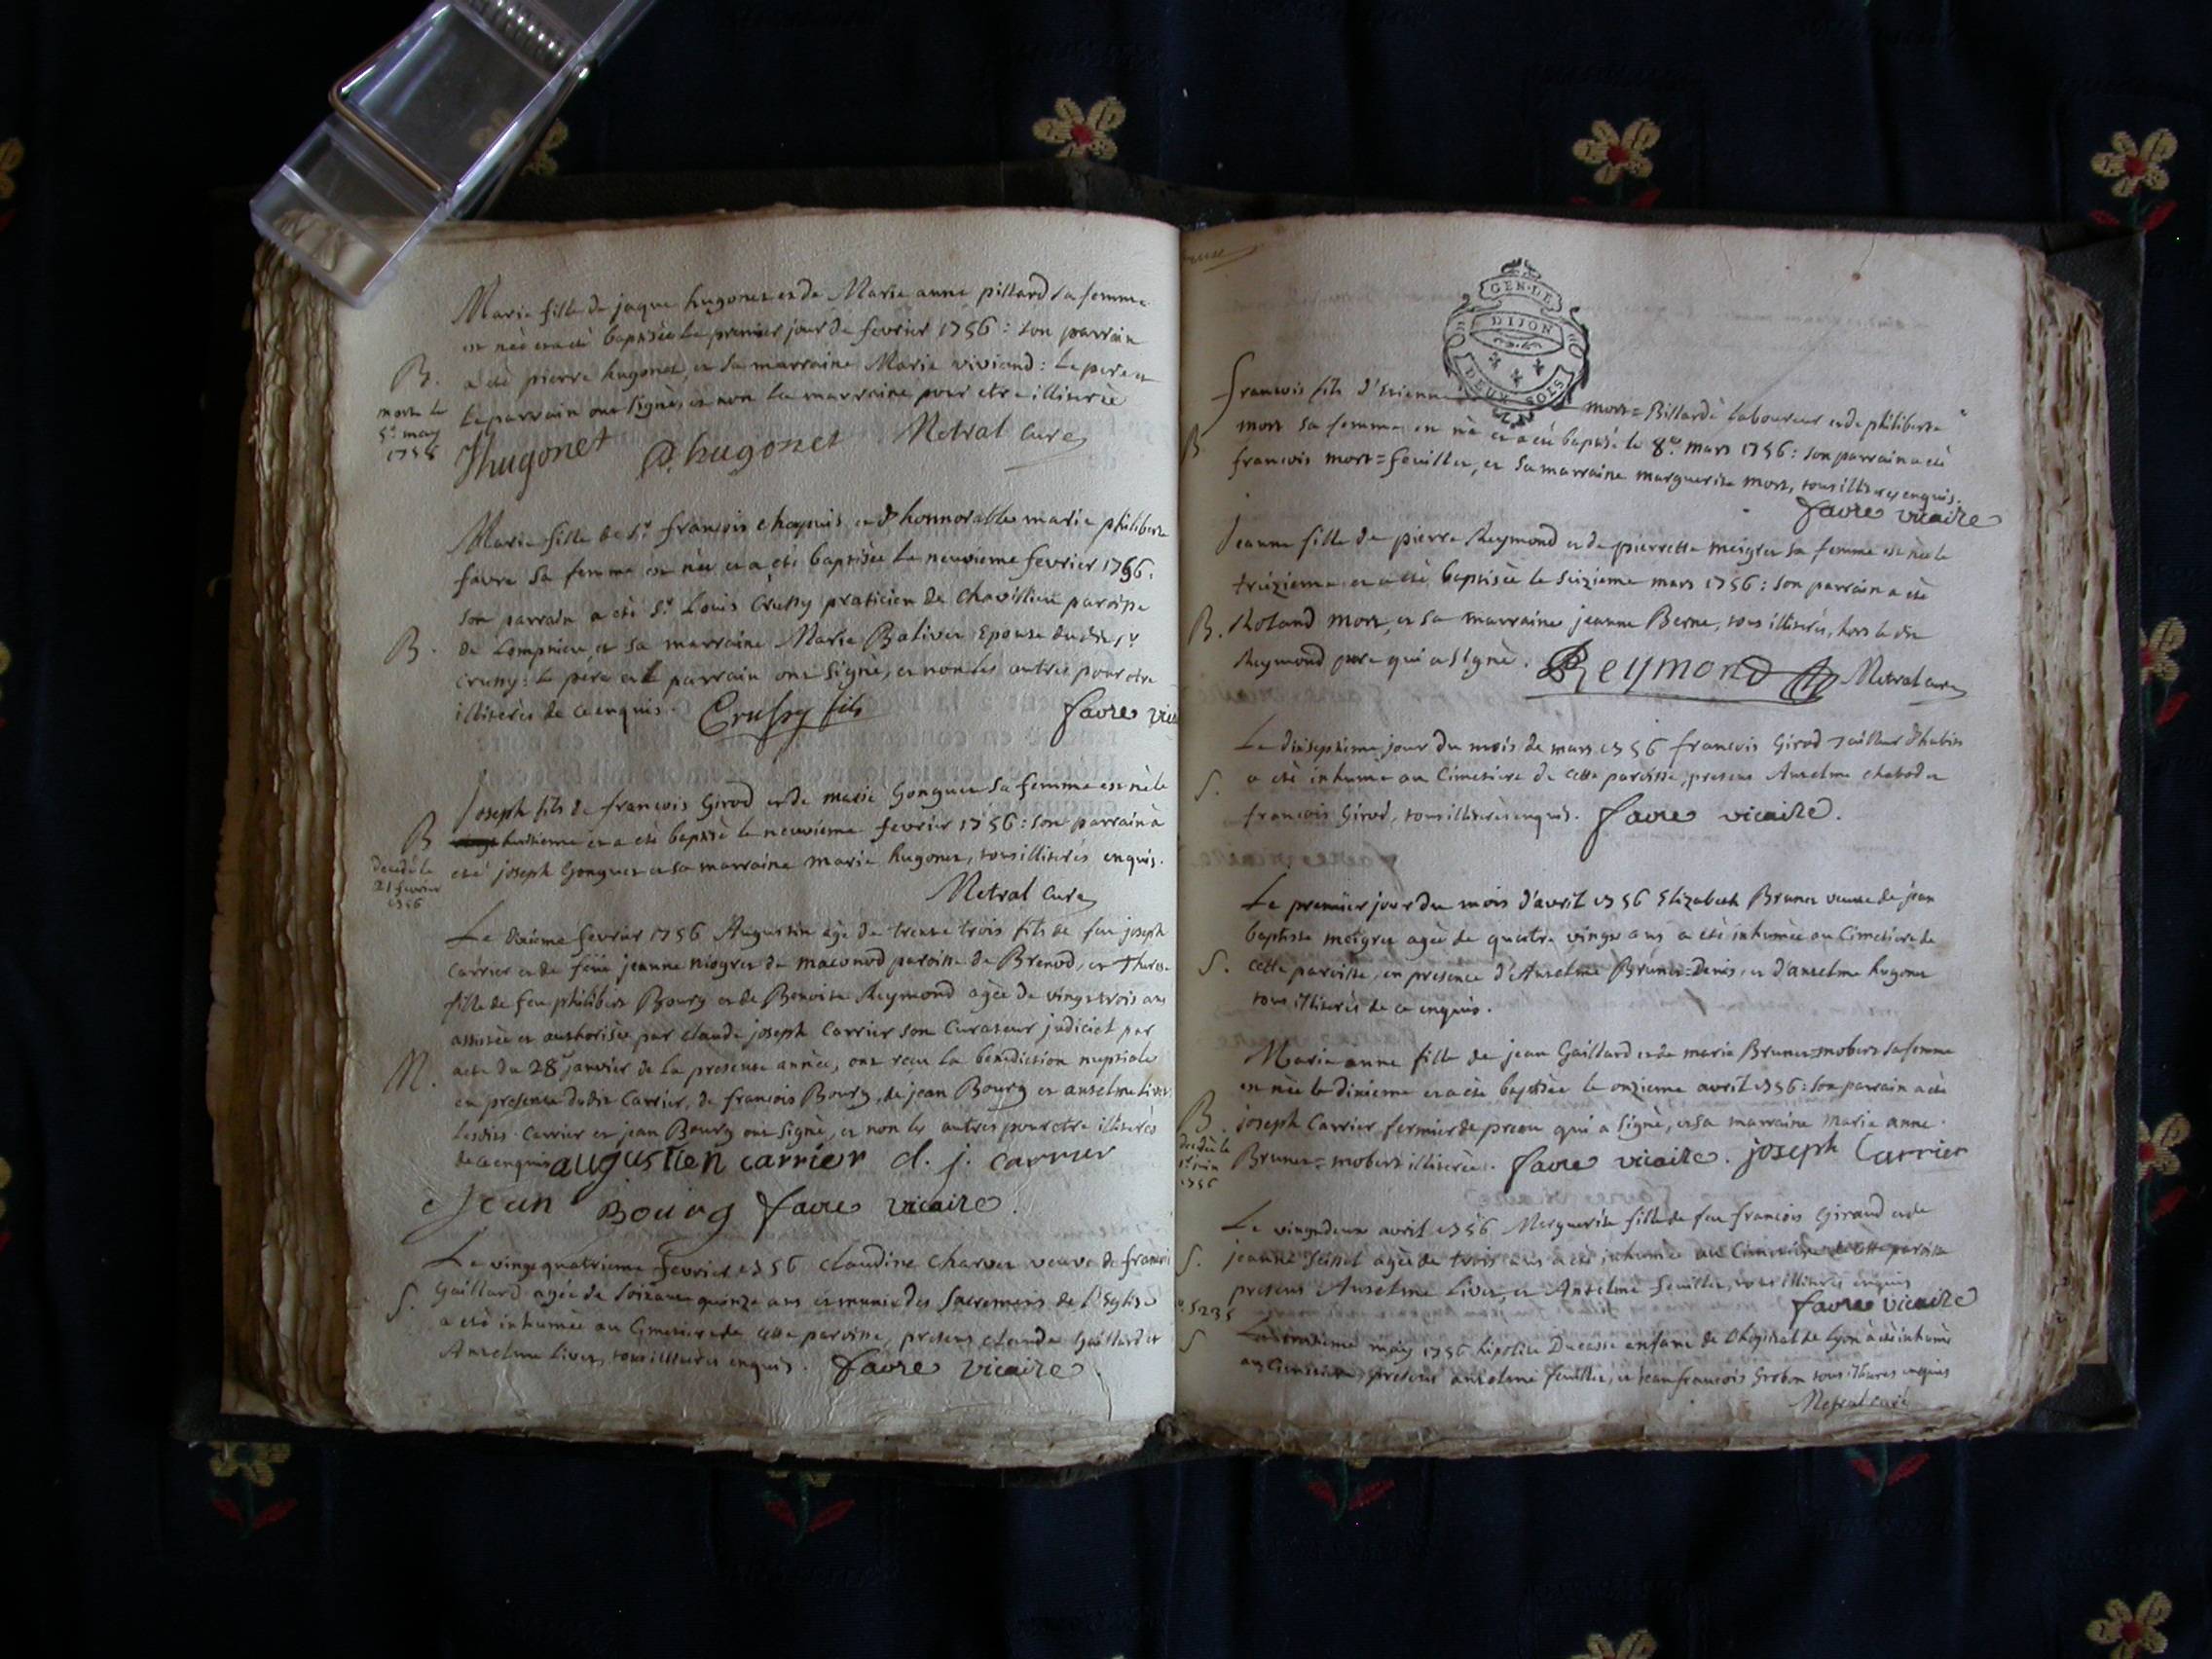 Marie fille de jaque hugonet et de Marie anne pillard sa femme
est née et a été baptisée le premier jour de fevrier 1756 : son parrain
B. a été pierre hugonet, et sa marraine Marie viviand : le pere et
morte le
5e may
1758
le parrain ont signés, et non la marraine pour etre illiterée
Jhugonet P. hugonet Metral curé
Marie fille de Sr françois chapuis et d honnorable marie philiberte
favre sa femme est née et a été baptisée le neuvieme fevrier 1756.
son parrain a été Sr Louis Crussy praticien de Chavillieu paroisse
B. de Lompnieu, et sa marraine Marie Balivet Epouse dudit Sr
crussy : le pere et le parrain ont signé, et non les autres pour etre
illiterés de ce enquis. Crussy fils favre vic
Joseph fils de françois Girod et de marie Gonguet sa femme est né le
B huitieme et a été baptisé le neuvieme fevrier 1756 : son parrain a
decedé le
21 fevrier
1756
été joseph Gonguet et sa marraine marie hugonet, tous illiterés enquis.
Metral curé
Le dixieme fevrier 1756 Augustin agé de trente trois fils de feu joseph
Carrier et de feüe jeanne niogret de maconod paroisse de Brenod, et therese
fille de feu philibert Bourg et de Benoite Reymond agée de vingt trois ans
assistée et authorisée par claude joseph Carrier son Curateur judiciel par
M. acte du 28e janvier de la presente année, ont recu la benediction nuptiale
en presence dudit Carrier, de françois Bourg, de jean Bourg et anselme livet
lesdits Carrier et jean Bourg ont signé, et non les autres pour etre illiterés
de ce enquis augustien carrier c. j. carrier
Jean Bourg favre vicaire.
Le vingt quatrieme fevrier 1756 claudine charvet veuve de françois
Gaillard agée de soixante quinze ans et munie des Sacremens de l'Eglise
S. a été inhumée au Cimetiere de cette paroisse, presens claude Gaillard et
Anselme livet, tous illiterés enquis. favre vicaire.
GEN. DE
DIJON
DEUX SOLS
francois fils d'Etienne mort=Billardé laboureur et de philiberte
B mort sa femme est né et a été baptisé le 8e mars 1756 : son parrain a été
francois mort=feuillet, et sa marraine marguerite mort, tous illiterés enquis.
favre vicaire
Jeanne fille de pierre Reymond et de pierrette meigret sa femme est née le
treizieme et a été baptisée le seizieme mars 1756 : son parrain a été
B. Roland mort, et sa marraine jeanne Berne, tous illiterés, hors le dit
Reymond pere qui a signé. Reymond Metral curé
Le dixseptieme jour du mois de mars 1756 francois Girod tailleur d'habits
S. a été inhumé au Cimetiere de cette paroisse, presens Anselme chabod et
francois Girod, tous illiterés enquis. favre vicaire.
Le premier jour du mois d'avril 1756 Elizabeth Brunet veuve de jean
baptiste meigret agée de quatre vingt ans a été inhumée au Cimetiere de
S. cette paroisse, en presence d'Anselme Brunet=Denis, et d'anselme hugonet
tous illiterés de ce enquis.
Marie anne fille de jean Gaillard et de marie Brunet=mobert sa femme
est née le dixieme et a été baptisée le onzieme avril 1756 : son parrain a été
B. joseph Carrier fermier de preou qui a signé, et sa marraine Marie anne
decedée le
1er juin
1756
Brunet=mobert illiterée. favre vicaire. joseph Carrier
Le vingt deux avril 1756 Marguerite fille de feu francois Giraud et de
S. jeanne agée de trois ans a été inhumée au Cimetiere de cette paroisse
presens Anselme Livet, et Anselme feuillet, tous illiterés enquis
favre vicaire
S may 1756 hipolite Ducasse enfant de l'hopital de Lyon a été inhumé
au Cimetiere, presens anselme feuillet, et jean francois Grobon tous illiterés enquis
Metral curé